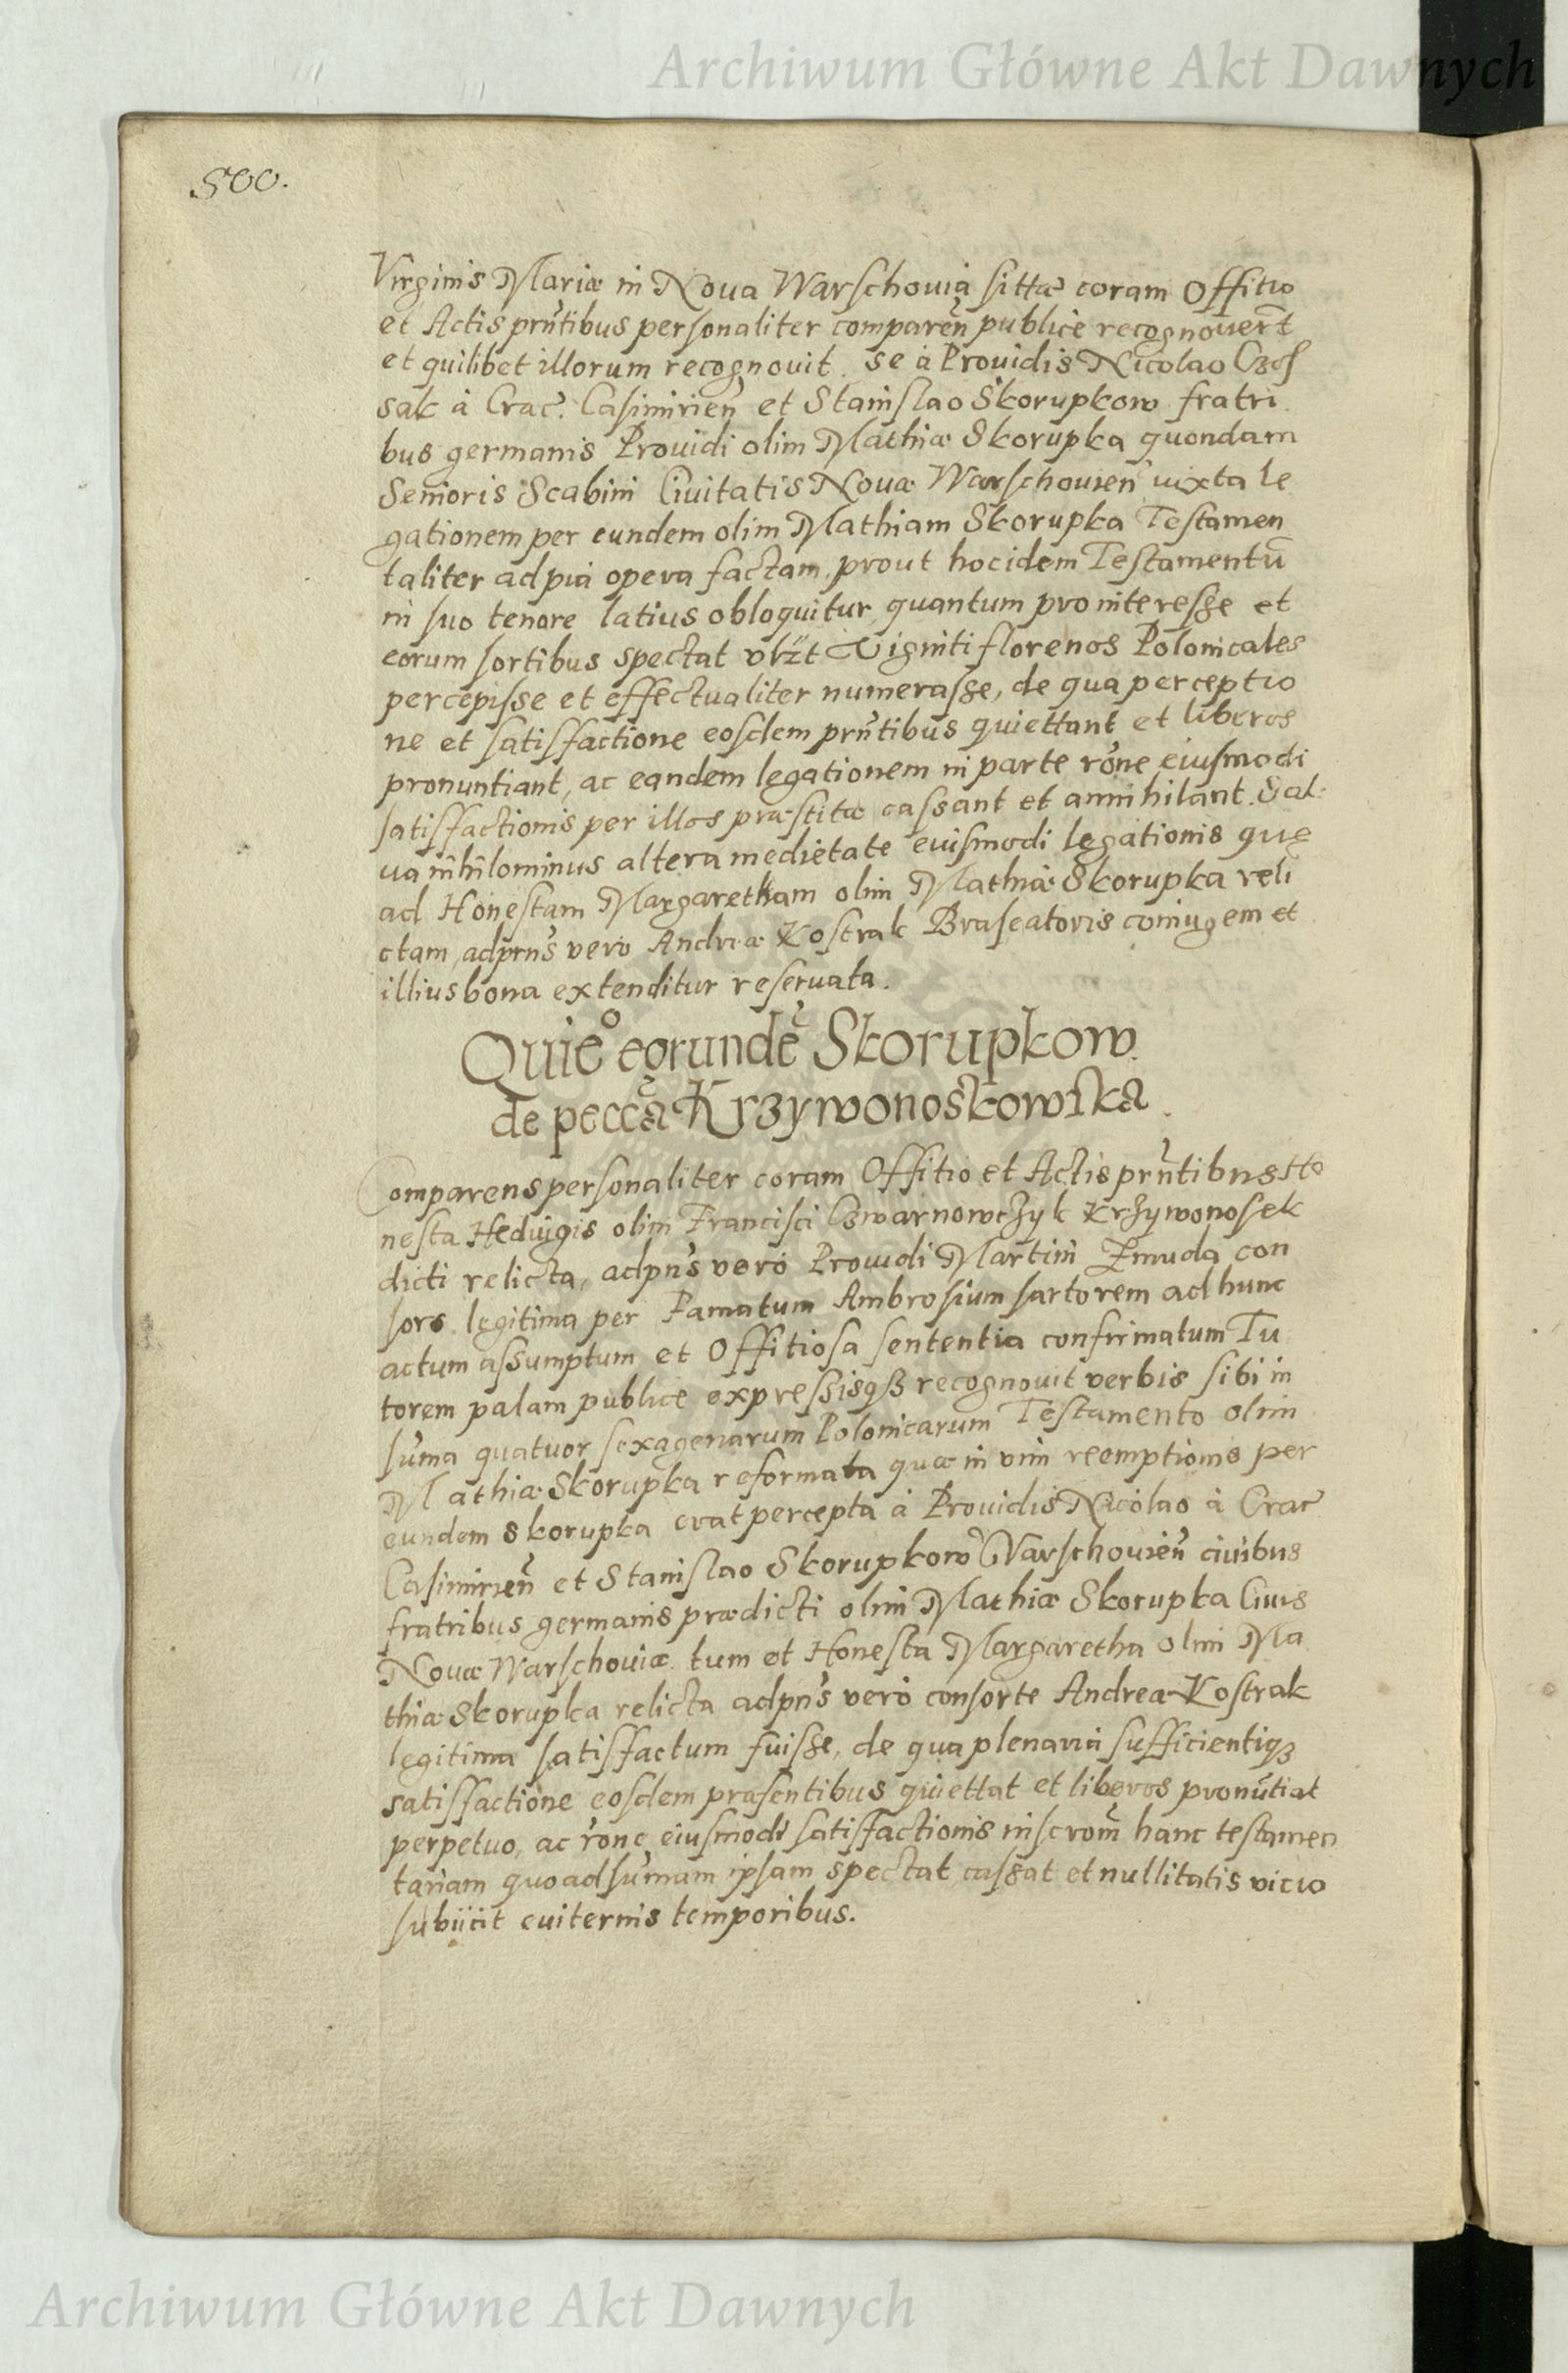 Archiwum Główne Akt Dawnych
500.
Virginis Mariæ in Noua Warschouia sittæ coram Offitio
et Actis prñtibus personaliter compareñ publice recognouert̃
et quilibet illorum recognovit. se à Prouidis Nicolao Czos
sak à Crac̃. Casimirieñ et Stanislao Skorupkow fratri
bus germanis Prouidi olim Mathiæ Skorupka quondam
Senioris Scabini Ciuitatis Nouæ Warschouieñ iuxta le
gationem per eundem olim Mathiam Skorupka Testamen
taliter ad pia opera factam, prout hoc idem Testamentũ
in suo tenore latius obloquitur, quantum pro interesse et
eorum sortibus spectat vlz̃t Viginti florenos Polonicales
percepisse et effectualiter numerasse, de qua perceptio
ne et satisfactione eosdem prñtibus quiettant et liberos
pronuntiant, ac eandem legationem in parte rõne eiusmodi
satisfactionis per illos præstitæ cassant et annihilant. Sal:
ua nihilominus altera medietate eiusmodi legationis quę
ad Honestam Margaretham olim Mathiæ Skorupka reli
ctam, ad prñs vero Andreæ Kostrak Braseatoris coniugem et
illius bona extenditur reseruata.
Quie° eorunde Skorupkow
de pecca Krzywonoskowska.
Comparens personaliter coram Offitio et Actis prñtibus Ho
nesta Heduigis olim Francisci Czwarnowczyk Krzywonosek
dicti relicta, ad pñs vero Prouidi Martini Zmuda con
sors legitima per Famatum Ambrosium sartorem ad hunc
actum assumptum et Offitiosa sententia confirmatum Tu
torem palam publice expressisqꝫ recognouit verbis sibi in
sũma quatuor sexagenarum Polonicarum Testamento olim
Mathiæ Skorupka reformata quæ in vim reemptionis per
eundem Skorupka erat percepta à Prouidis Nicolao à Crac̃
Casimirieñ et Stanislao Skorupkow Warschouieñ ciuibus
fratribus germanis prædicti olim Mathiæ Skorupka Ciuis
Nouæ Warschouiæ tum et Honesta Margaretha olim Ma
thiæ Skorupka relicta ad pñs vero consorte Andreæ Kostrak
legitima satisfactum fuisse, de qua plenaria sufficientiqꝫ
satisfactione eosdem præsentibus quiettat et liberos pronũtiat
perpetuo, ac rõne eiusmodi satisfactionis inscrom̃ hanc testamen
tariam quoad sũmam ipsam spectat cassat et nullitatis vicio
subiicit euiternis temporibus.
Archiwum Główne Akt Dawnych